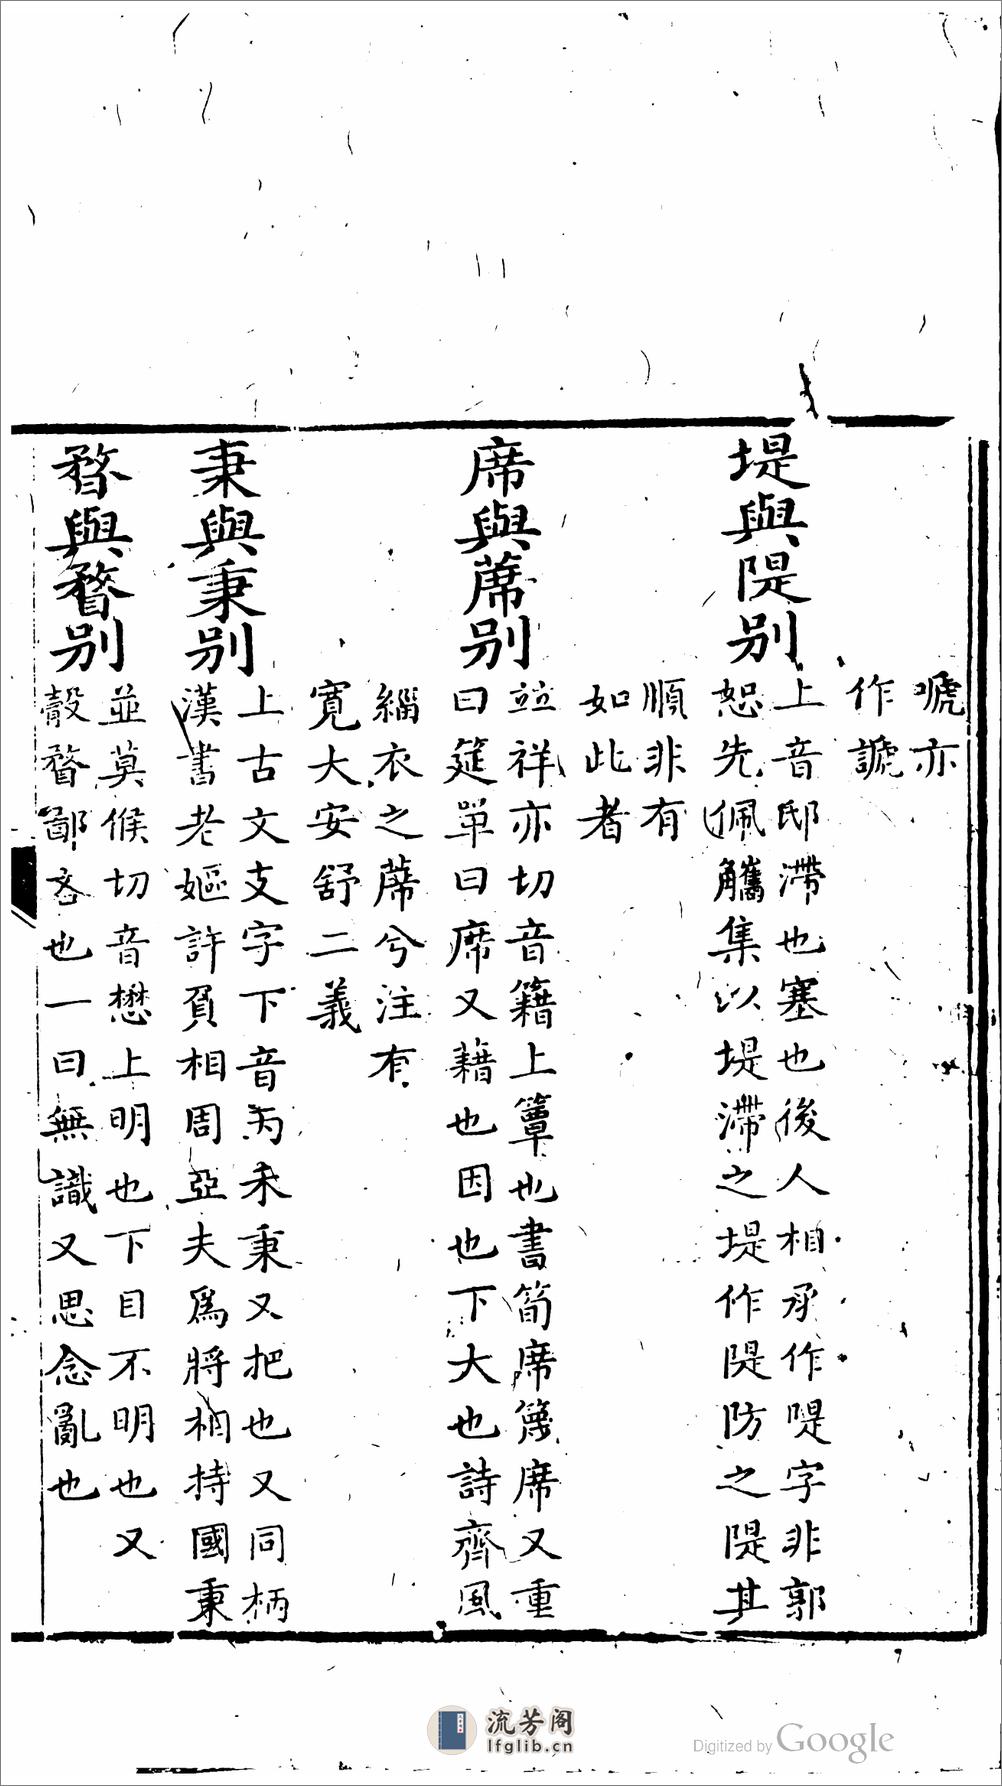 嗁亦
作謕
堤與隄別
上音邸滯也塞也後人相承作隄字非郭
恕先佩觿集以堤滯之堤作隄防之隄其
順非有
如此者
席與蓆別
竝祥亦切音籍上簟也書筍席篾席又重
曰筵單曰席又藉也因也下大也詩齊風
緇衣之蓆兮注有
寬大安舒二義
秉與秉別
上古文支字下音丙禾秉又把也又同柄
漢書老嫗許負相周亞夫爲將相持國秉
瞀與瞀別
並莫候切音懋上明也下目不明也又
瞉瞀鄙吝也一曰無識又思念亂也
流芳阁
lfglib.cn
Digitized by Google